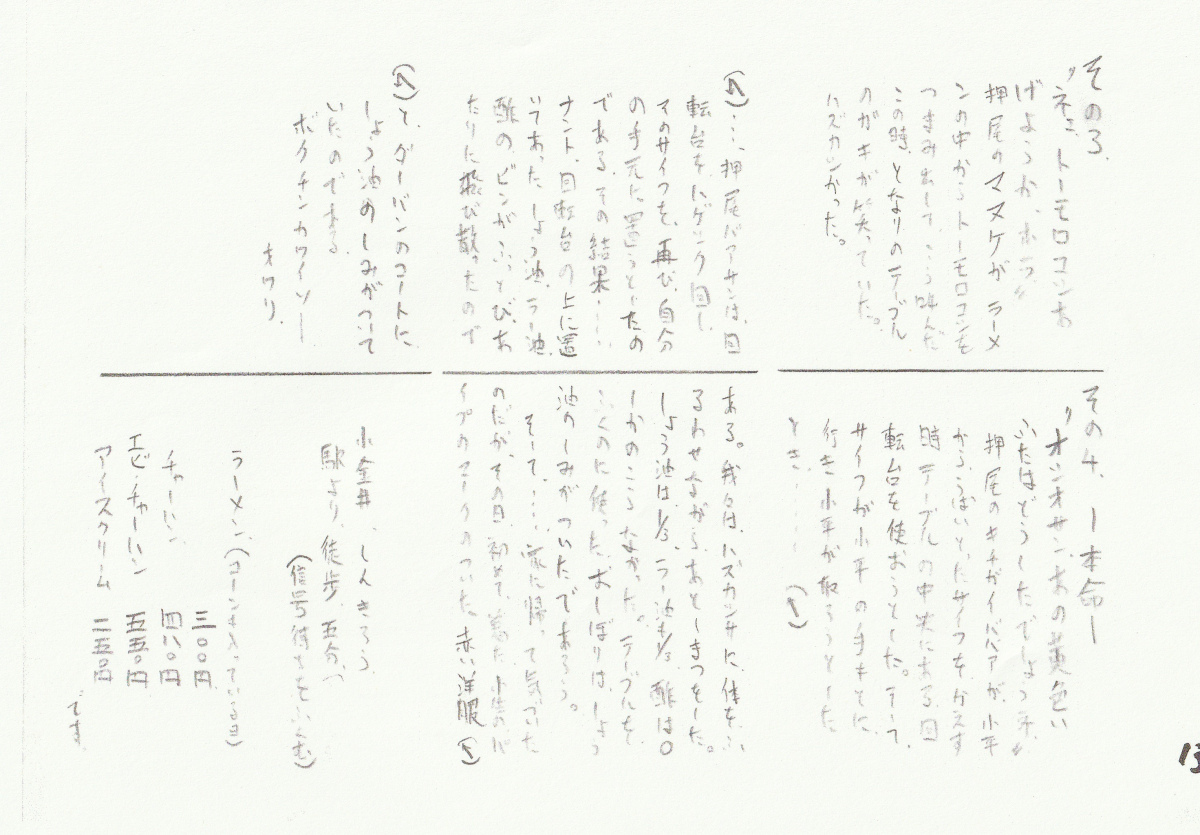 その3.
〝ネエ、トーモロコシあ
げようか、ホラ〟
押尾のマヌケが ラーメ
ンの中からトーモロコシを
つまみ出して、こう叫んだ
この時、となりのテーブル
のガキが笑っていた。
ハズカシかった。
その4. ー本命ー
〝オシオサン、あの黄色い
ふたはどうしたでしょうネ〟
押尾のキチガイババアが、小平
からうばいとったサイフをかえす
時 テーブルの中央にある 回
転台を使おうとした。そして、
サイフが小平の手もとに
行き 小平が取ろうとした
とき‥‥‥
(↰)
(↰)‥‥、押尾バアサンは、回
転台を、にゲンク回し
そのサイフを、再び、自分
の手元に置こうとしたの
である。その結果‥‥‥
ナント、回転台の上に置
いてあった しょう油、ラー油、
酢のビンがふっとび、あ
たりに飛び散ったので
ある。我々は、ハズカシサに、体を、ふ
るわせながら、あとしまつをした。
しょう油は、1/3、ラー油も1/3、酢は○
しかのこらなかった。テーブルを、
ふくのに使った、おしぼりは、しょう
油のしみがついたであろう。
そして、‥‥‥家に帰って気づいた
のだが、その日、初めて、着た、小生の、パ
イプのマークのついた、赤い洋服(↰)
(↰)と、ダーバンのコートに、
しょう油のしみがついて
いたのである
ボクチンカワイソー
オワリ.
小金井、しんきろう
駅より、徒歩、五分、
(信号待ちをふくむ)
ラーメン、(コーンも入っているヨ)
三〇〇円
チャーハン 四八〇円
エビ・チャーハン 五五〇円
アイスクリーム 二五〇円
です.
13